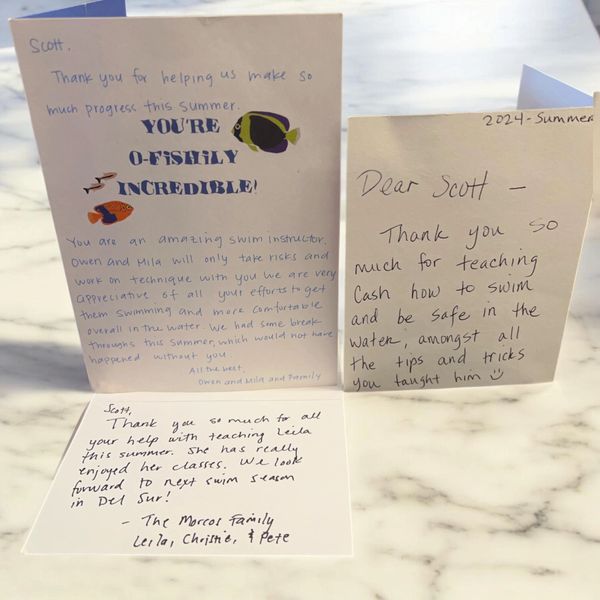 Scott,
Thank you for helping us make so
much progress this summer.
YOU'RE
O-FISHILY
INCREDIBLE!
You are an amazing swim instructor.
Owen and Mila will only take risks and
work on technique with you we are very
appreciative of all your efforts to get
them swimming and more comfortable
overall in the water. We had some break
throughs this summer, which would not have
happened without you.
All the best,
Owen and Mila and Family
2024-Summer
Dear Scott -
Thank you so
much for teaching
Cash how to swim
and be safe in the
water, amongst all
the tips and tricks
you taught him
Scott,
Thank you so much for all
your help with teaching Leila
this summer. She has really
enjoyed her classes. We look
forward to next swim season
in Del Sur!
- The Marcos Family
Leila, Christie, & Pete